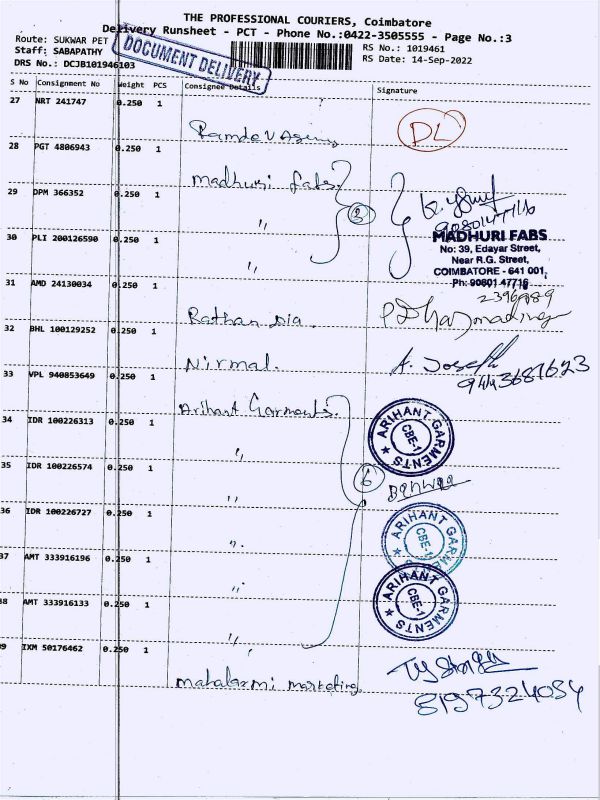 THE PROFESSIONAL COURIERS, Coimbatore
Delivery Runsheet - PCT - Phone No.:0422-3505555 - Page No.:3
Route: SUKWAR PET
RS No.: 1019461
Staff: SABAPATHY
RS Date: 14-Sep-2022
DRS No.: DCJB101946103
DOCUMENT DELIVERY
S No Consignment No Weight PCS Consignee Details Signature
27 NRT 241747 0.250 1
Ramdev Agency
DL
28 PGT 4806943 0.250 1
Madhuri fabs.
29 DPM 366352 0.250 1
3
9080147716
"
MADHURI FABS
No: 39, Edayar Street,
Near R.G. Street,
COIMBATORE - 641 001.
Ph: 90801 47716
30 PLI 200126590 0.250 1
"
31 AMD 24130034 0.250 1
2396989
Rathan Dia.
32 BHL 100129252 0.250 1
Nirmal.
A. Joseph
9443681623
33 VPL 940853649 0.250 1
Arihant Garments.
ARIHANT GARMENTS
CBE-1
34 IDR 100226313 0.250 1
"
35 IDR 100226574 0.250 1
6
"
36 IDR 100226727 0.250 1
ARIHANT GARMENTS
CBE-1
"
37 AMT 333916196 0.250 1
"
ARIHANT GARMENTS
CBE-1
38 AMT 333916133 0.250 1
"
39 IXM 50176462 0.250 1
mahalaxmi marketing
8197324034